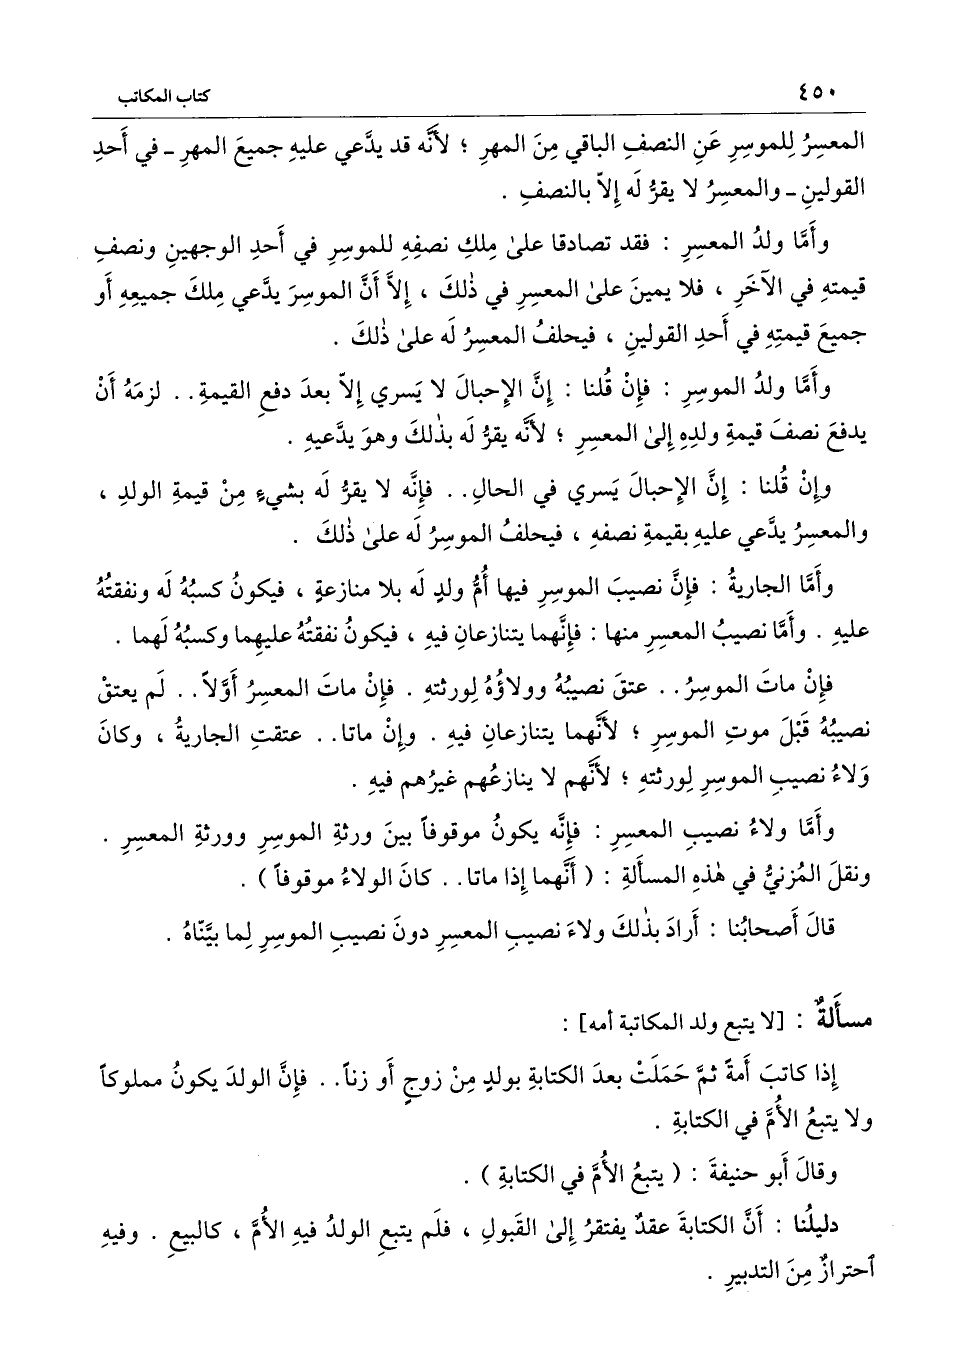 ٤٥٠
كتاب المكاتب
المعسِرُ لِلموسِرِ عَنِ النصفِ الباقي مِنَ المهرِ ؛ لأَنَّه قد يدَّعي عليهِ جميعَ المهرِ ـ في أَحدِ
القولينِ ـ والمعسِرُ لا يقرُّ لَه إِلاّ بالنصفِ .
وأَمَّا ولدُ المعسِرِ : فقد تصادقا علىٰ مِلكِ نصفِهِ للموسِرِ في أَحدِ الوجهينِ ونصفِ
قيمتهِ في الآخَرِ ، فلا يمينَ علىٰ المعسِرِ في ذٰلكَ ، إِلاَّ أَنَّ الموسِرَ يدَّعي مِلكَ جميعِهِ أَو
جميعَ قيمتِهِ في أَحدِ القولينِ ، فيحلفُ المعسِرُ لَه علىٰ ذٰلكَ .
وأَمَّا ولدُ الموسِرِ : فإِنْ قُلنا : إِنَّ الإِحبالَ لا يَسري إِلاّ بعدَ دفعِ القيمةِ . . لزمَهُ أَنْ
يدفعَ نصفَ قيمةِ ولدِهِ إِلىٰ المعسِرِ ؛ لأَنَّه يقرُّ لَه بذٰلكَ وهوَ يدَّعيهِ .
وإِنْ قُلنا : إِنَّ الإِحبالَ يَسري في الحالِ . . فإِنَّه لا يقرُّ لَه بشيءٍ مِنْ قيمةِ الولدِ ،
والمعسِرُ يدَّعي عليهِ بقيمةِ نصفهِ ، فيحلفُ الموسِرُ لَه علىٰ ذٰلكَ .
وأَمَّا الجاريةُ : فإِنَّ نصيبَ الموسِرِ فيها أُمُّ ولدٍ لَه بلا منازعةٍ ، فيكونُ كسبُهُ لَه ونفقتُهُ
عليهِ . وأَمَّا نصيبُ المعسِرِ منها : فإِنَّهما يتنازعانِ فيهِ ، فيكونُ نفقتُهُ عليهِما وكسبُهُ لَهما .
فإِنْ ماتَ الموسِرُ . . عتقَ نصيبُهُ وولاؤُهُ لِورثتهِ . فإِنْ ماتَ المعسِرُ أَوَّلاً . . لَم يعتقْ
نصيبُهُ قَبْلَ موتِ الموسِرِ ؛ لأَنَّهما يتنازعانِ فيهِ . وإِنْ ماتا . . عتقتِ الجاريةُ ، وكانَ
وَلاءُ نصيبِ الموسِرِ لِورثتهِ ؛ لأَنَّهم لا ينازعُهم غيرُهم فيهِ .
وأَمَّا ولاءُ نصيبِ المعسِرِ : فإِنَّه يكونُ موقوفاً بينَ ورثةِ الموسِرِ وورثةِ المعسِرِ .
ونقلَ المُزنيُّ في هٰذهِ المسأَلةِ : ( أَنَّهما إِذا ماتا . . كانَ الولاءُ موقوفاً ) .
قالَ أَصحابُنا : أَرادَ بذٰلكَ ولاءَ نصيبِ المعسِرِ دونَ نصيبِ الموسِرِ لِما بيَّنّاهُ .
مسأَلةٌ : [لا يتبع ولد المكاتبة أمه] :
إِذا كاتبَ أَمةً ثمَّ حَمَلَتْ بعدَ الكتابةِ بولدٍ مِنْ زوجٍ أَو زناً . . فإِنَّ الولدَ يكونُ مملوكاً
ولا يتبعُ الأُمَّ في الكتابةِ .
وقالَ أَبو حنيفةَ : ( يتبعُ الأُمَّ في الكتابةِ ) .
دليلُنا : أَنَّ الكتابةَ عقدٌ يفتقرُ إِلىٰ القَبولِ ، فلَم يتبعِ الولدُ فيهِ الأُمَّ ، كالبيعِ . وفيهِ
ٱحترازٌ مِنَ التدبيرِ .